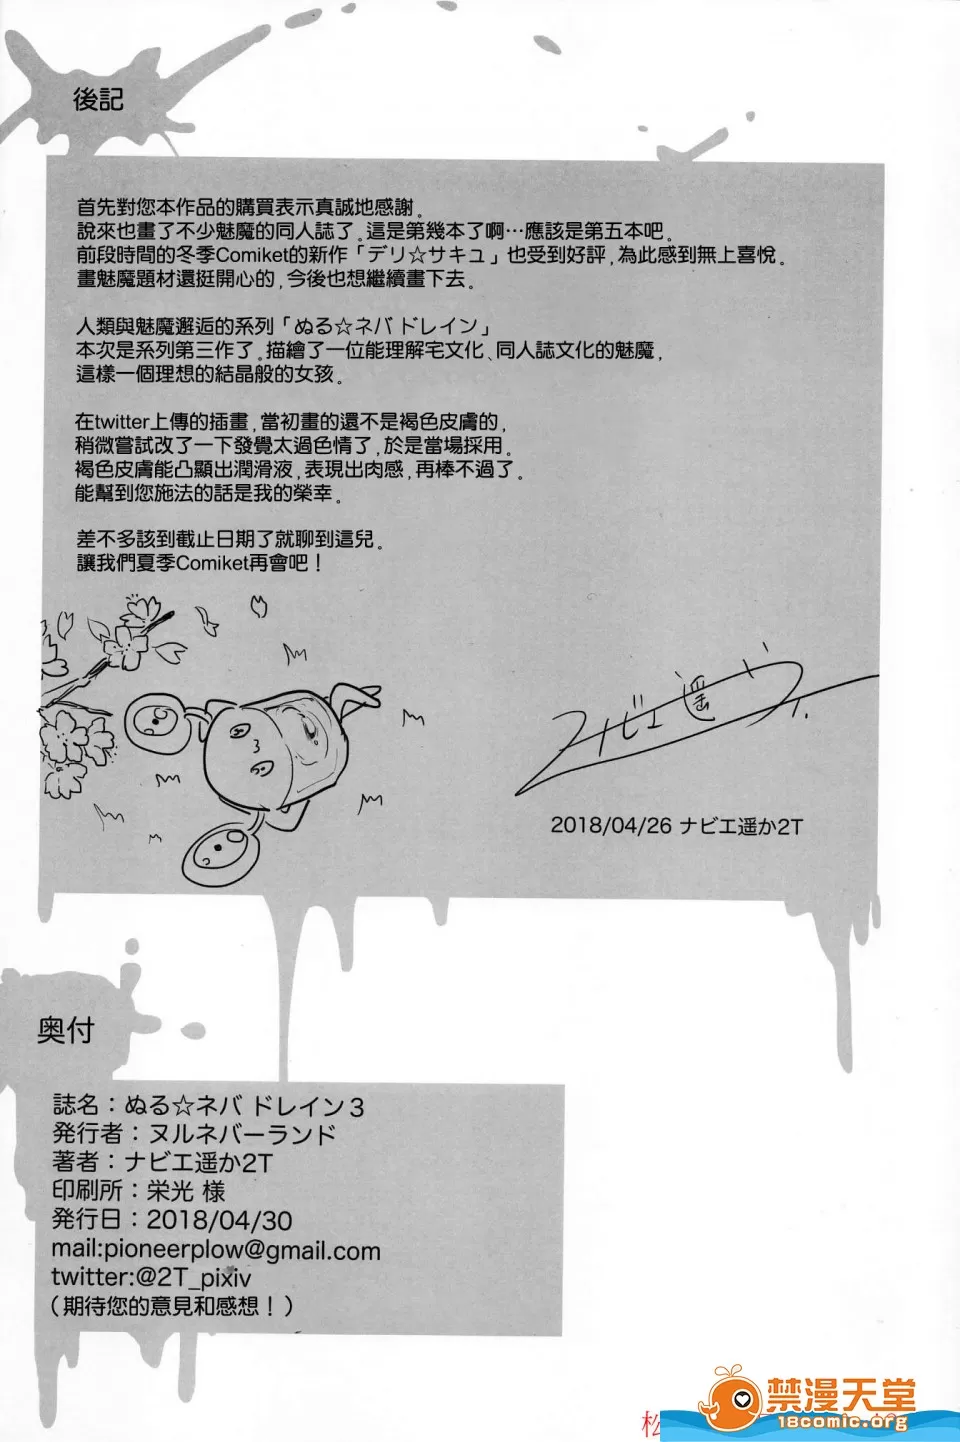 後記
首先對您本作品的購買表示真誠地感謝。
說來也畫了不少魅魔的同人誌了。這是第幾本了啊…應該是第五本吧。
前段時間的冬季Comiket的新作「デリ☆サキュ」也受到好評，為此感到無上喜悅。
畫魅魔題材還挺開心的，今後也想繼續畫下去。
人類與魅魔邂逅的系列「ぬる☆ネバ ドレイン」
本次是系列第三作了。描繪了一位能理解宅文化、同人誌文化的魅魔，
這樣一個理想的結晶般的女孩。
在twitter上傳的插畫，當初畫的還不是褐色皮膚的，
稍微嘗試改了一下發覺太過色情了，於是當場採用。
褐色皮膚能凸顯出潤滑液，表現出肉感，再棒不過了。
能幫到您施法的話是我的榮幸。
差不多該到截止日期了就聊到這兒。
讓我們夏季Comiket再會吧！
ナビエ遥か
2018/04/26 ナビエ遥か2T
奥付
誌名：ぬる☆ネバ ドレイン３
発行者：ヌルネバーランド
著者：ナビエ遥か2T
印刷所：栄光 様
発行日：2018/04/30
mail:pioneerplow@gmail.com
twitter:@2T_pixiv
（期待您的意見和感想！）
禁漫天堂
18comic.org
松